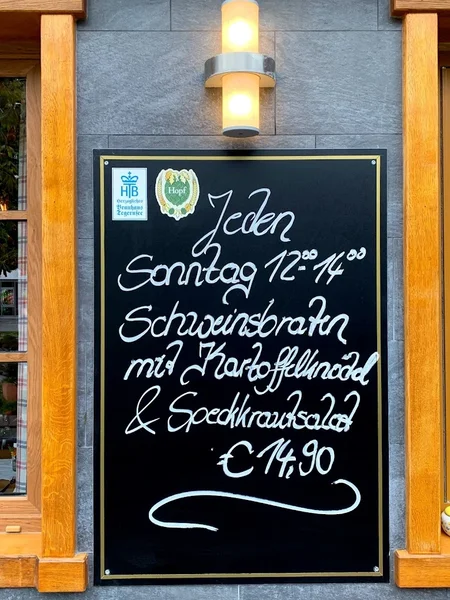 HTB
Herzogliches
Brauhaus
Tegernsee
Hopf
Jeden
Sonntag 12⁰⁰-14⁰⁰
Schweinsbraten
mit Kartoffelknödel
& Speckkrautsalat
€ 14,90